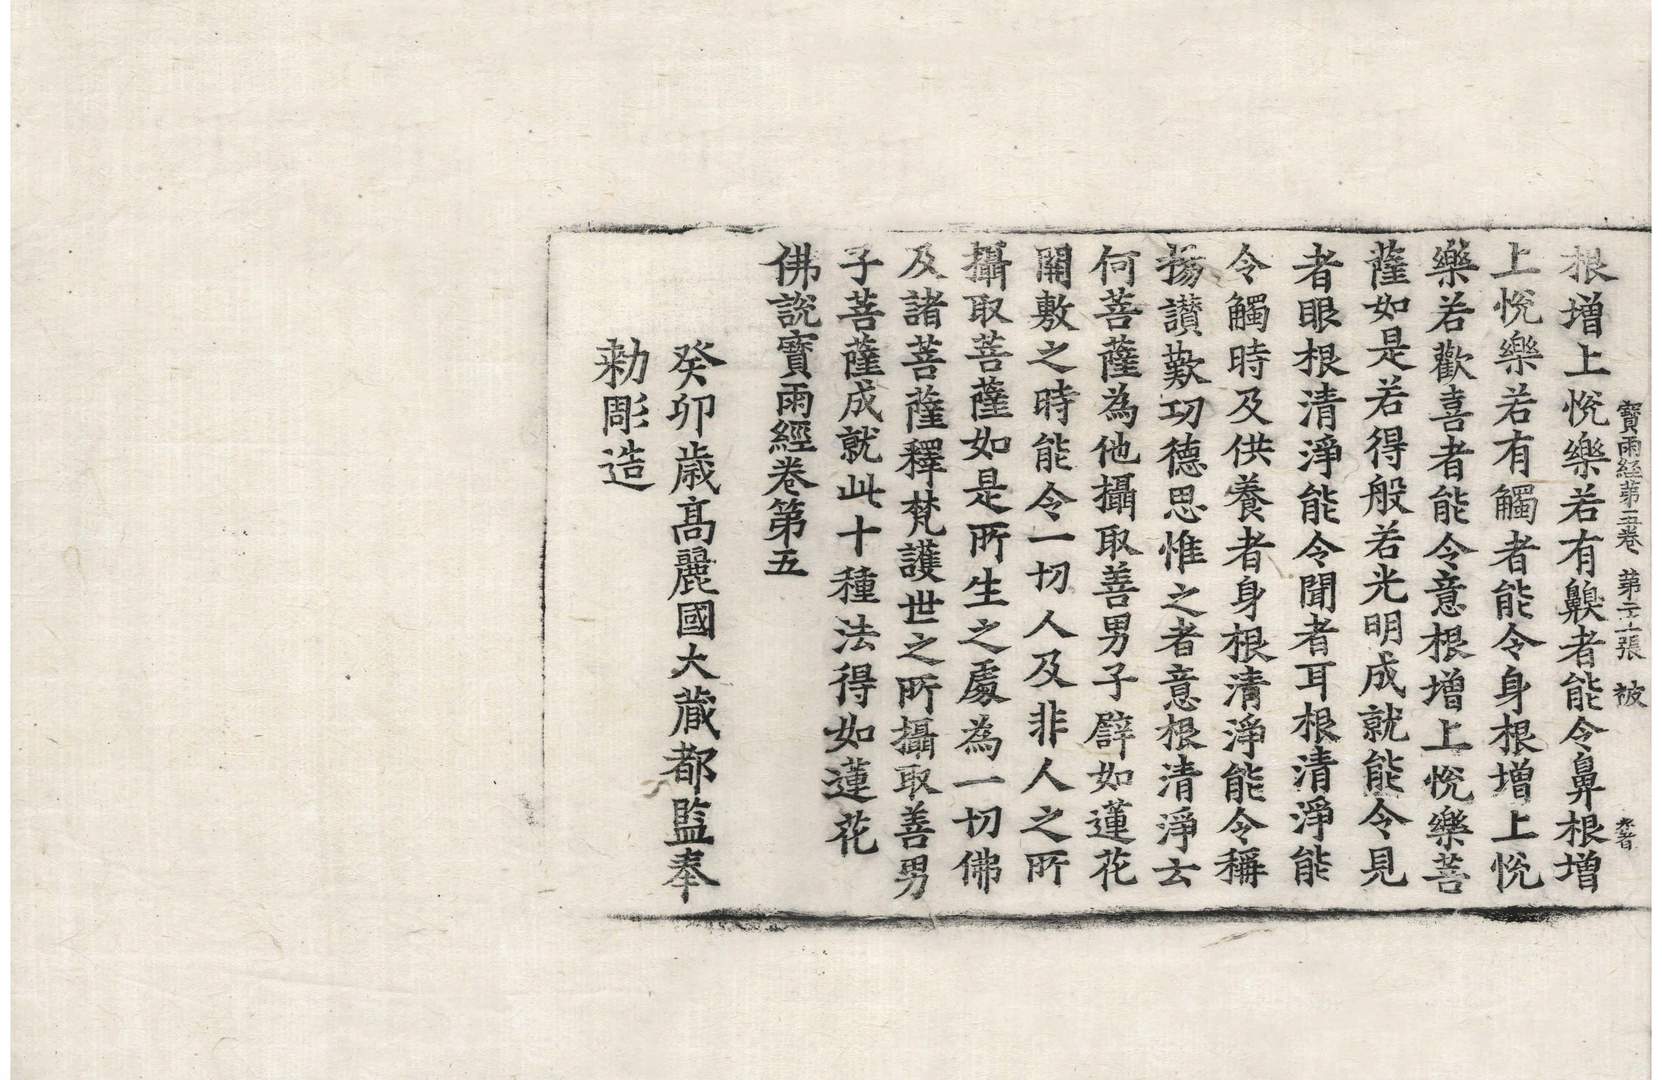 寶雨経第五卷　第二十張　被
根增上悅樂若有齅者能令鼻根增
上悅樂若有觸者能令身根增上悅
樂若歡喜者能令意根增上悅樂菩
薩如是若得般若光明成就能令見
者眼根清淨能令聞者耳根清淨能
令觸時及供養者身根清淨能令稱
揚讃歎功德思惟之者意根清淨云
何菩薩為他攝取善男子譬如蓮花
開敷之時能令一切人及非人之所
攝取菩薩如是所生之處為一切佛
及諸菩薩釋梵護世之所攝取善男
子菩薩成就此十種法得如蓮花
佛說寶雨經卷第五
癸卯歳高麗國大藏都監奉
勑彫造